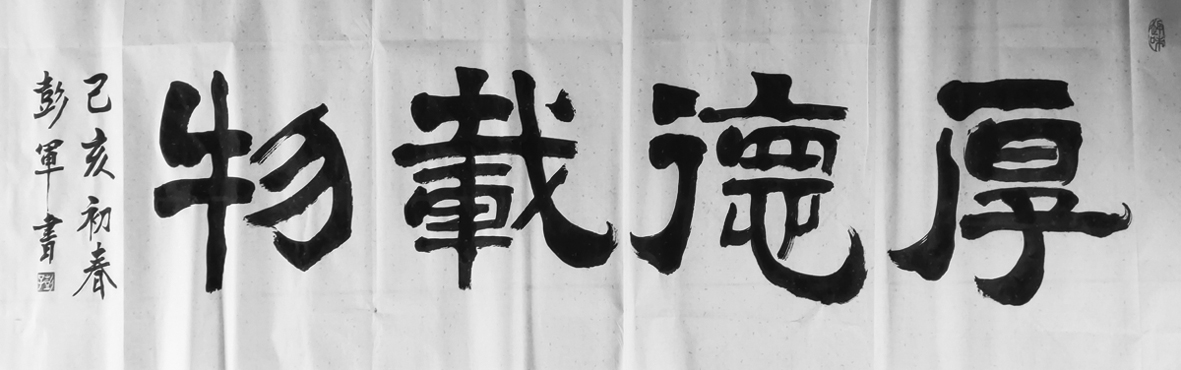 厚德載物
己亥初春
彭軍書